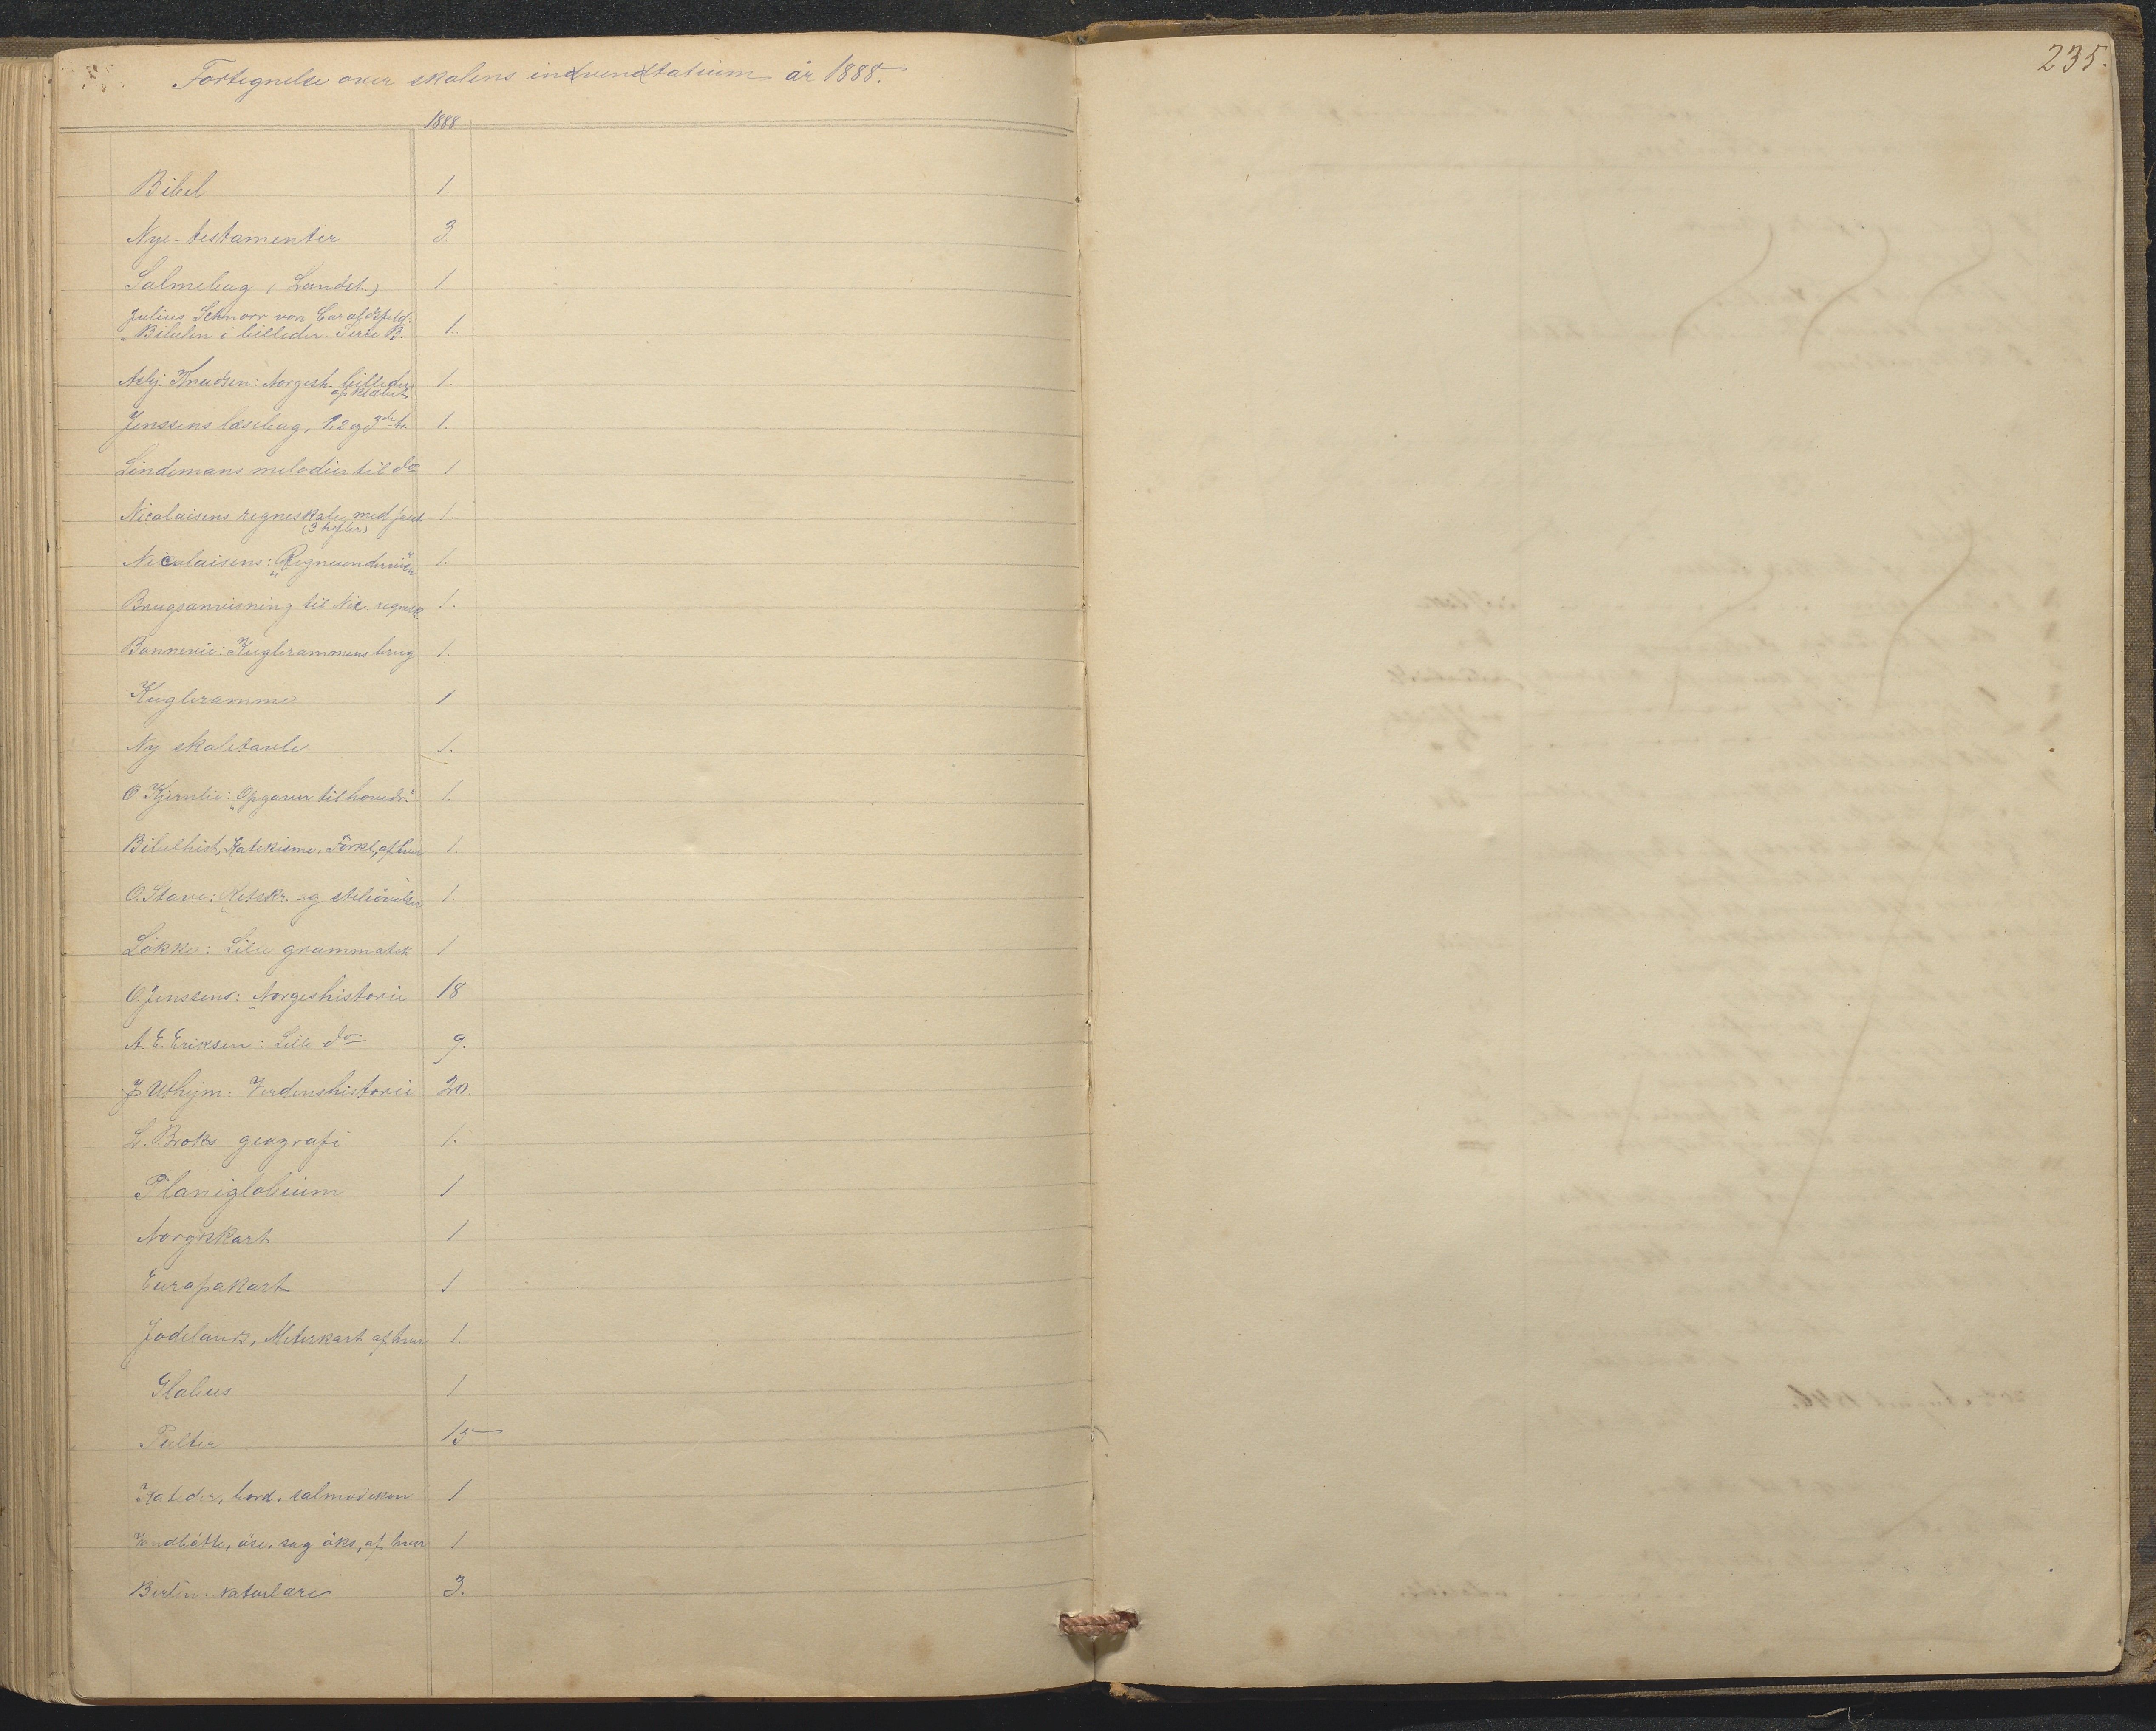 Fortegnelse over skolens indvendtatium år 1888.
235.
1888
Bibel 1.
Nye-testamenter 3
Salmebog (Landst.) 1.
Julius Schnorr von Carolsfeld:
Bibelen i billeder. Serie B. 1.
Asbj. Knudsen: Norgesh. billeder 1.
opklæbet
Jenssens læsebog, 1. 2 og 3die tr. 1.
Lindemans melodier til do 1
Nicolaisens regneskole med facit 1.
(3 hefter)
Nicolaisens: "Regneundervisn" 1.
Brugsanvisning til Nic. regnesk. 1.
Bonnevie: Kuglerammens brug 1.
Kugleramme 1
Ny skoletavle 1.
O. Kjernlie: "Opgaver til hovedr." 1.
Bibelhist, Katekisme, Forkl, af hver 1.
O. Stave: Retskr. og stiløvelser 1.
Løkke: Lille grammatik 1
O. Jenssens: Norgeshistorie 18
A. E. Eriksen: Lille do 9.
J. Uthejm: Verdenshistorie 20.
L. Broks geografi 1.
Planiglobium 1
Norgeskart 1
Europakart 1
Jødelands, Meterkart af hver 1.
Globus 1
Pulter 15
Kateder, bord, salmodikon 1
Vandbøtte, øse, sag øks, af hver 1
Bertin. naturlære 3.